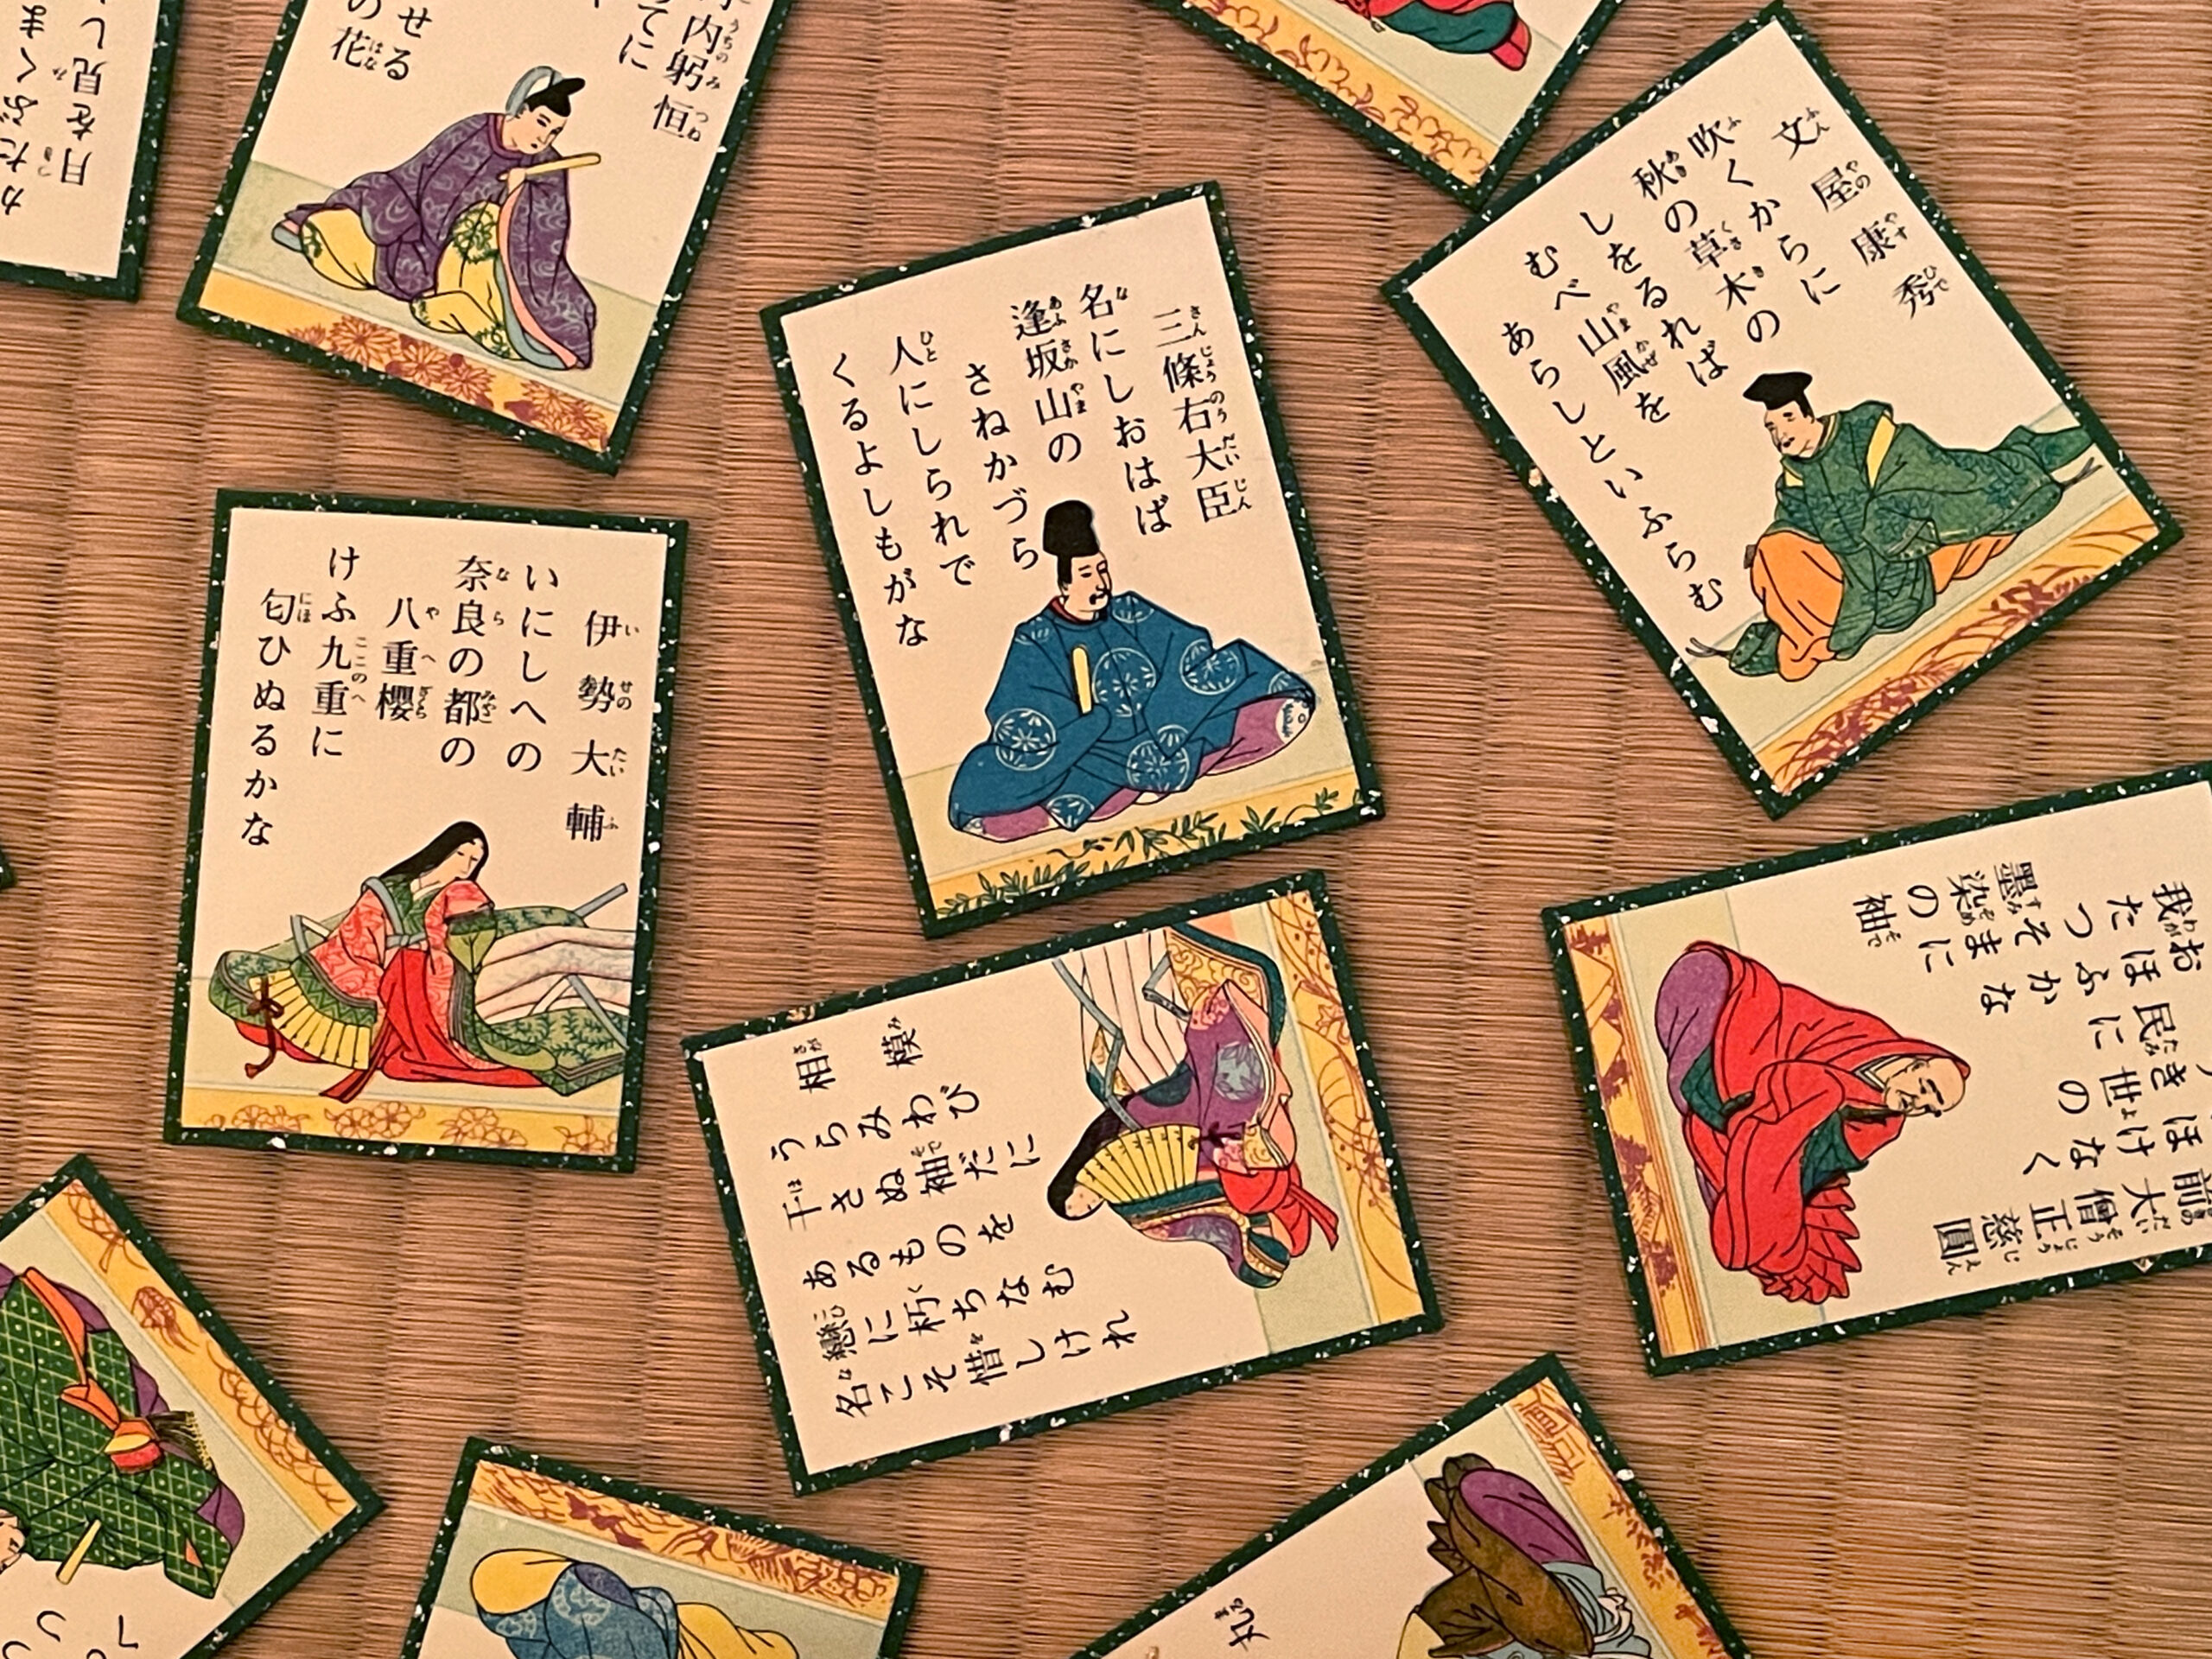 月を見し
かたぶくま
内躬恒
てに
せる
の花
三條右大臣
名にしおはば
逢坂山の
さねかづら
人にしられで
くるよしもがな
文屋康秀
吹くからに
秋の草木の
しをるれば
むべ山風を
あらしといふらむ
伊勢大輔
いにしへの
奈良の都の
八重櫻
けふ九重に
匂ひぬるかな
相模
うらみわび
干さぬ袖だに
あるものを
戀に朽ちなむ
名こそ惜しけれ
前大僧正慈圓
ほけなく
民の
我
たつそまに
墨染の袖
丸